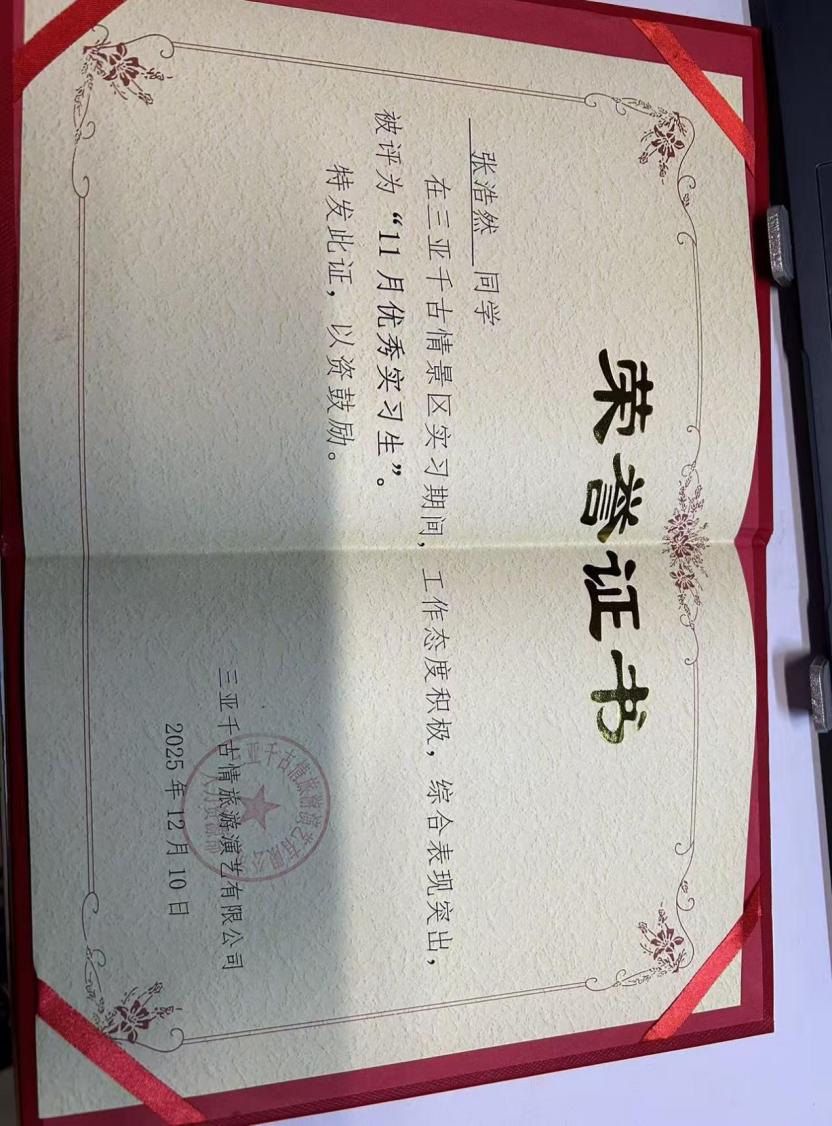 荣誉证书
张浩然 同学
在三亚千古情景区实习期间，工作态度积极，综合表现突出，
被评为“11月优秀实习生”。
特发此证，以资鼓励。
三亚千古情旅游演艺有限公司
2025年12月10日
三亚千古情旅游演艺有限公司
人力资源部